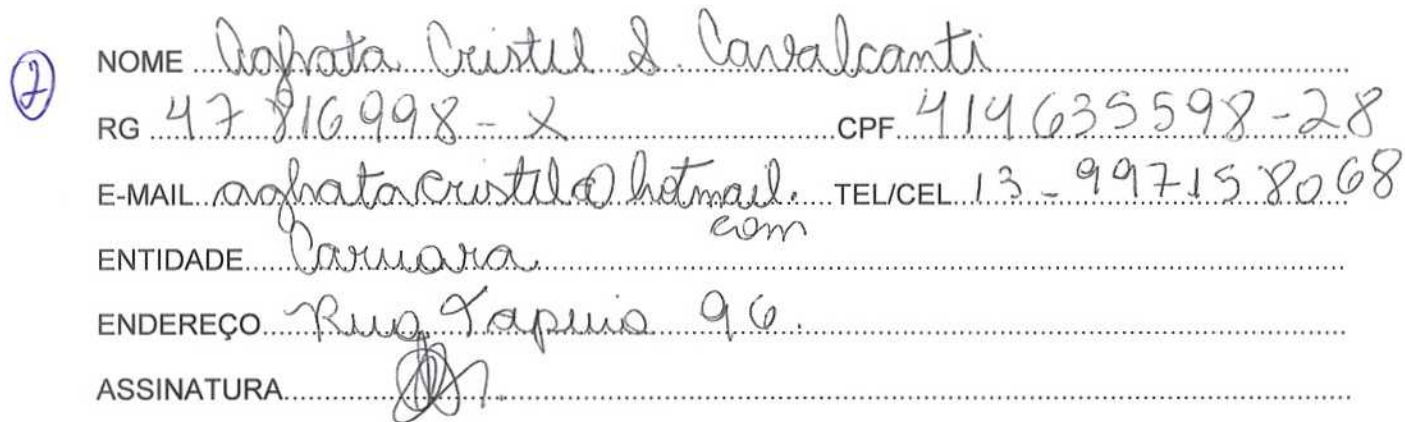 2
NOME Aghata Cristil S. Cavalcanti
RG 47816998-X CPF 414635598-28
E-MAIL aghatacristil@hotmail. TEL/CEL 13-997158068
com
ENTIDADE Caruara
ENDEREÇO Rua Tapuia 96.
ASSINATURA